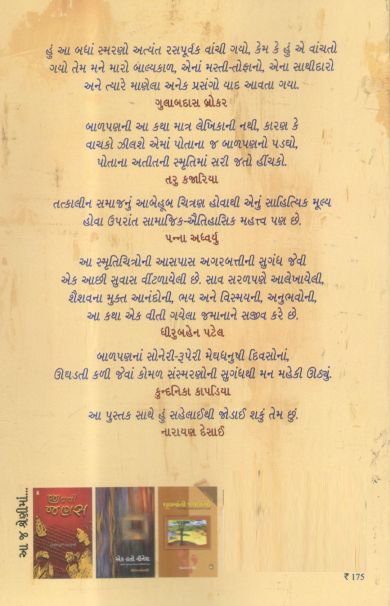 હું આ બધાં સ્મરણો અત્યંત રસપૂર્વક વાંચી ગયો, કેમ કે હું એ વાંચતો
ગયો તેમ મને મારો બાલ્યકાળ, એનાં મસ્તી-તોફાનો, એના સાથીદારો
અને ત્યારે માણેલા અનેક પ્રસંગો યાદ આવતા ગયા.
ગુલાબદાસ બ્રોકર
બાળપણની આ કથા માત્ર લેખિકાની નથી, કારણ કે
વાચકો ઝીલશે એમાં પોતાના જ બાળપણનો પડઘો,
પોતાના અતીતની સ્મૃતિમાં સરી જતો હીંચકો.
તરુ કજારિયા
તત્કાલીન સમાજનું આબેહૂબ ચિત્રણ હોવાથી એનું સાહિત્યિક મૂલ્ય
હોવા ઉપરાંત સામાજિક-ઐતિહાસિક મહત્ત્વ પણ છે.
પન્ના અધ્વર્યુ
આ સ્મૃતિચિત્રોની આસપાસ અગરબત્તીની સુગંધ જેવી
એક આછી સુવાસ વીંટળાયેલી છે. સાવ સરળપણે આલેખાયેલી,
શૈશવના મુક્ત આનંદોની, ભય અને વિસ્મયની, અનુભવોની,
આ કથા એક વીતી ગયેલા જમાનાને સજીવ કરે છે.
ધીરુબહેન પટેલ
બાળપણનાં સોનેરી-રૂપેરી મેઘધનુષી દિવસોનાં,
ઊઘડતી કળી જેવાં કોમળ સંસ્મરણોની સુગંધથી મન મહેકી ઊઠ્યું.
કુન્દનિકા કાપડિયા
આ પુસ્તક સાથે હું સહેલાઈથી જોડાઈ શકું તેમ છું.
નારાયણ દેસાઈ
આ જ શ્રેણીમાં...
જણસ
એક હતો વીનેશ
₹ 175